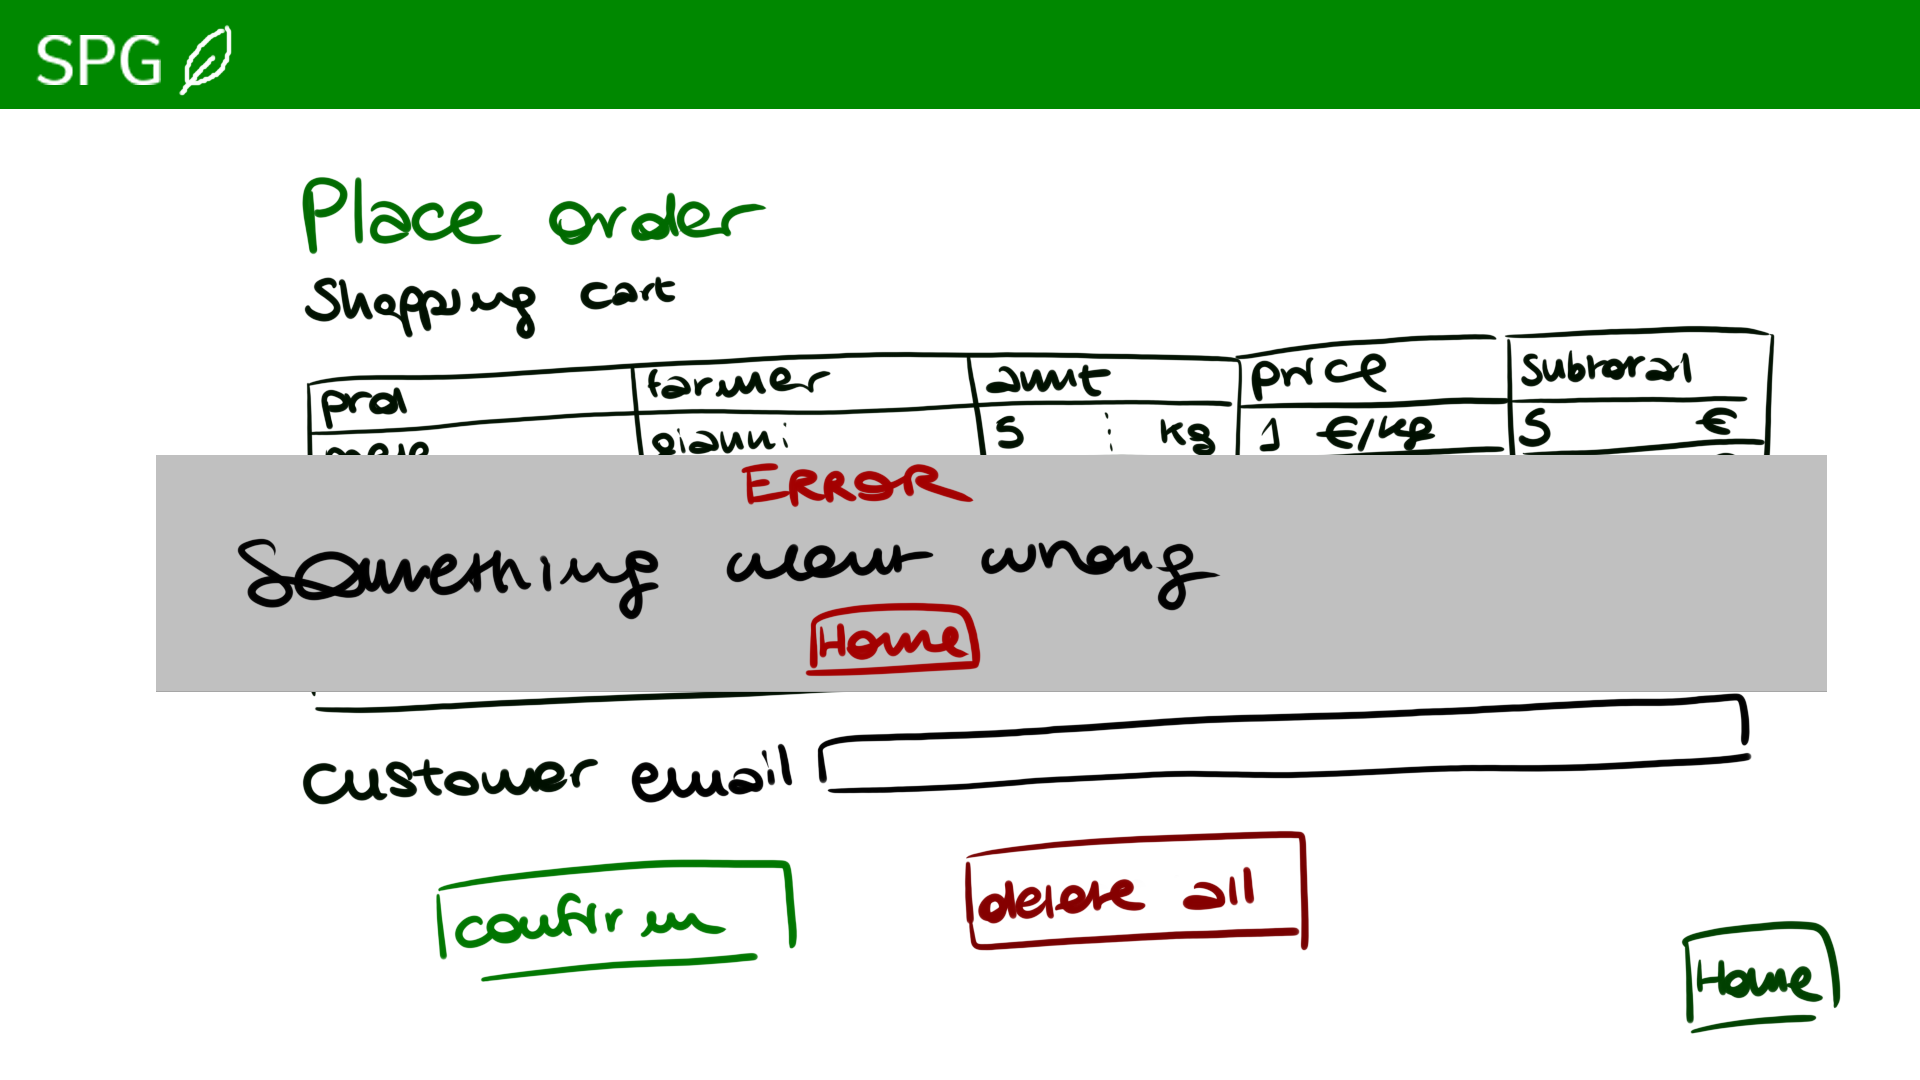 SPG
Place order
Shopping cart
prod farmer amnt price subtotal
mele gianni 5 kg 1 €/kg 5 €
ERROR
Something went wrong
Home
customer email
confirm delete all
Home